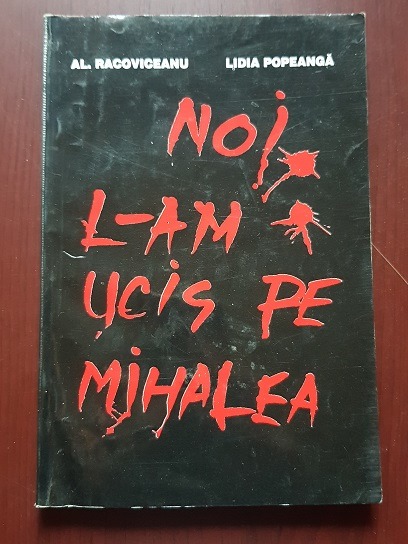 AL. RACOVICEANU LIDIA POPEANGĂ
NOI
L-AM
UCIS PE
MIHALEA